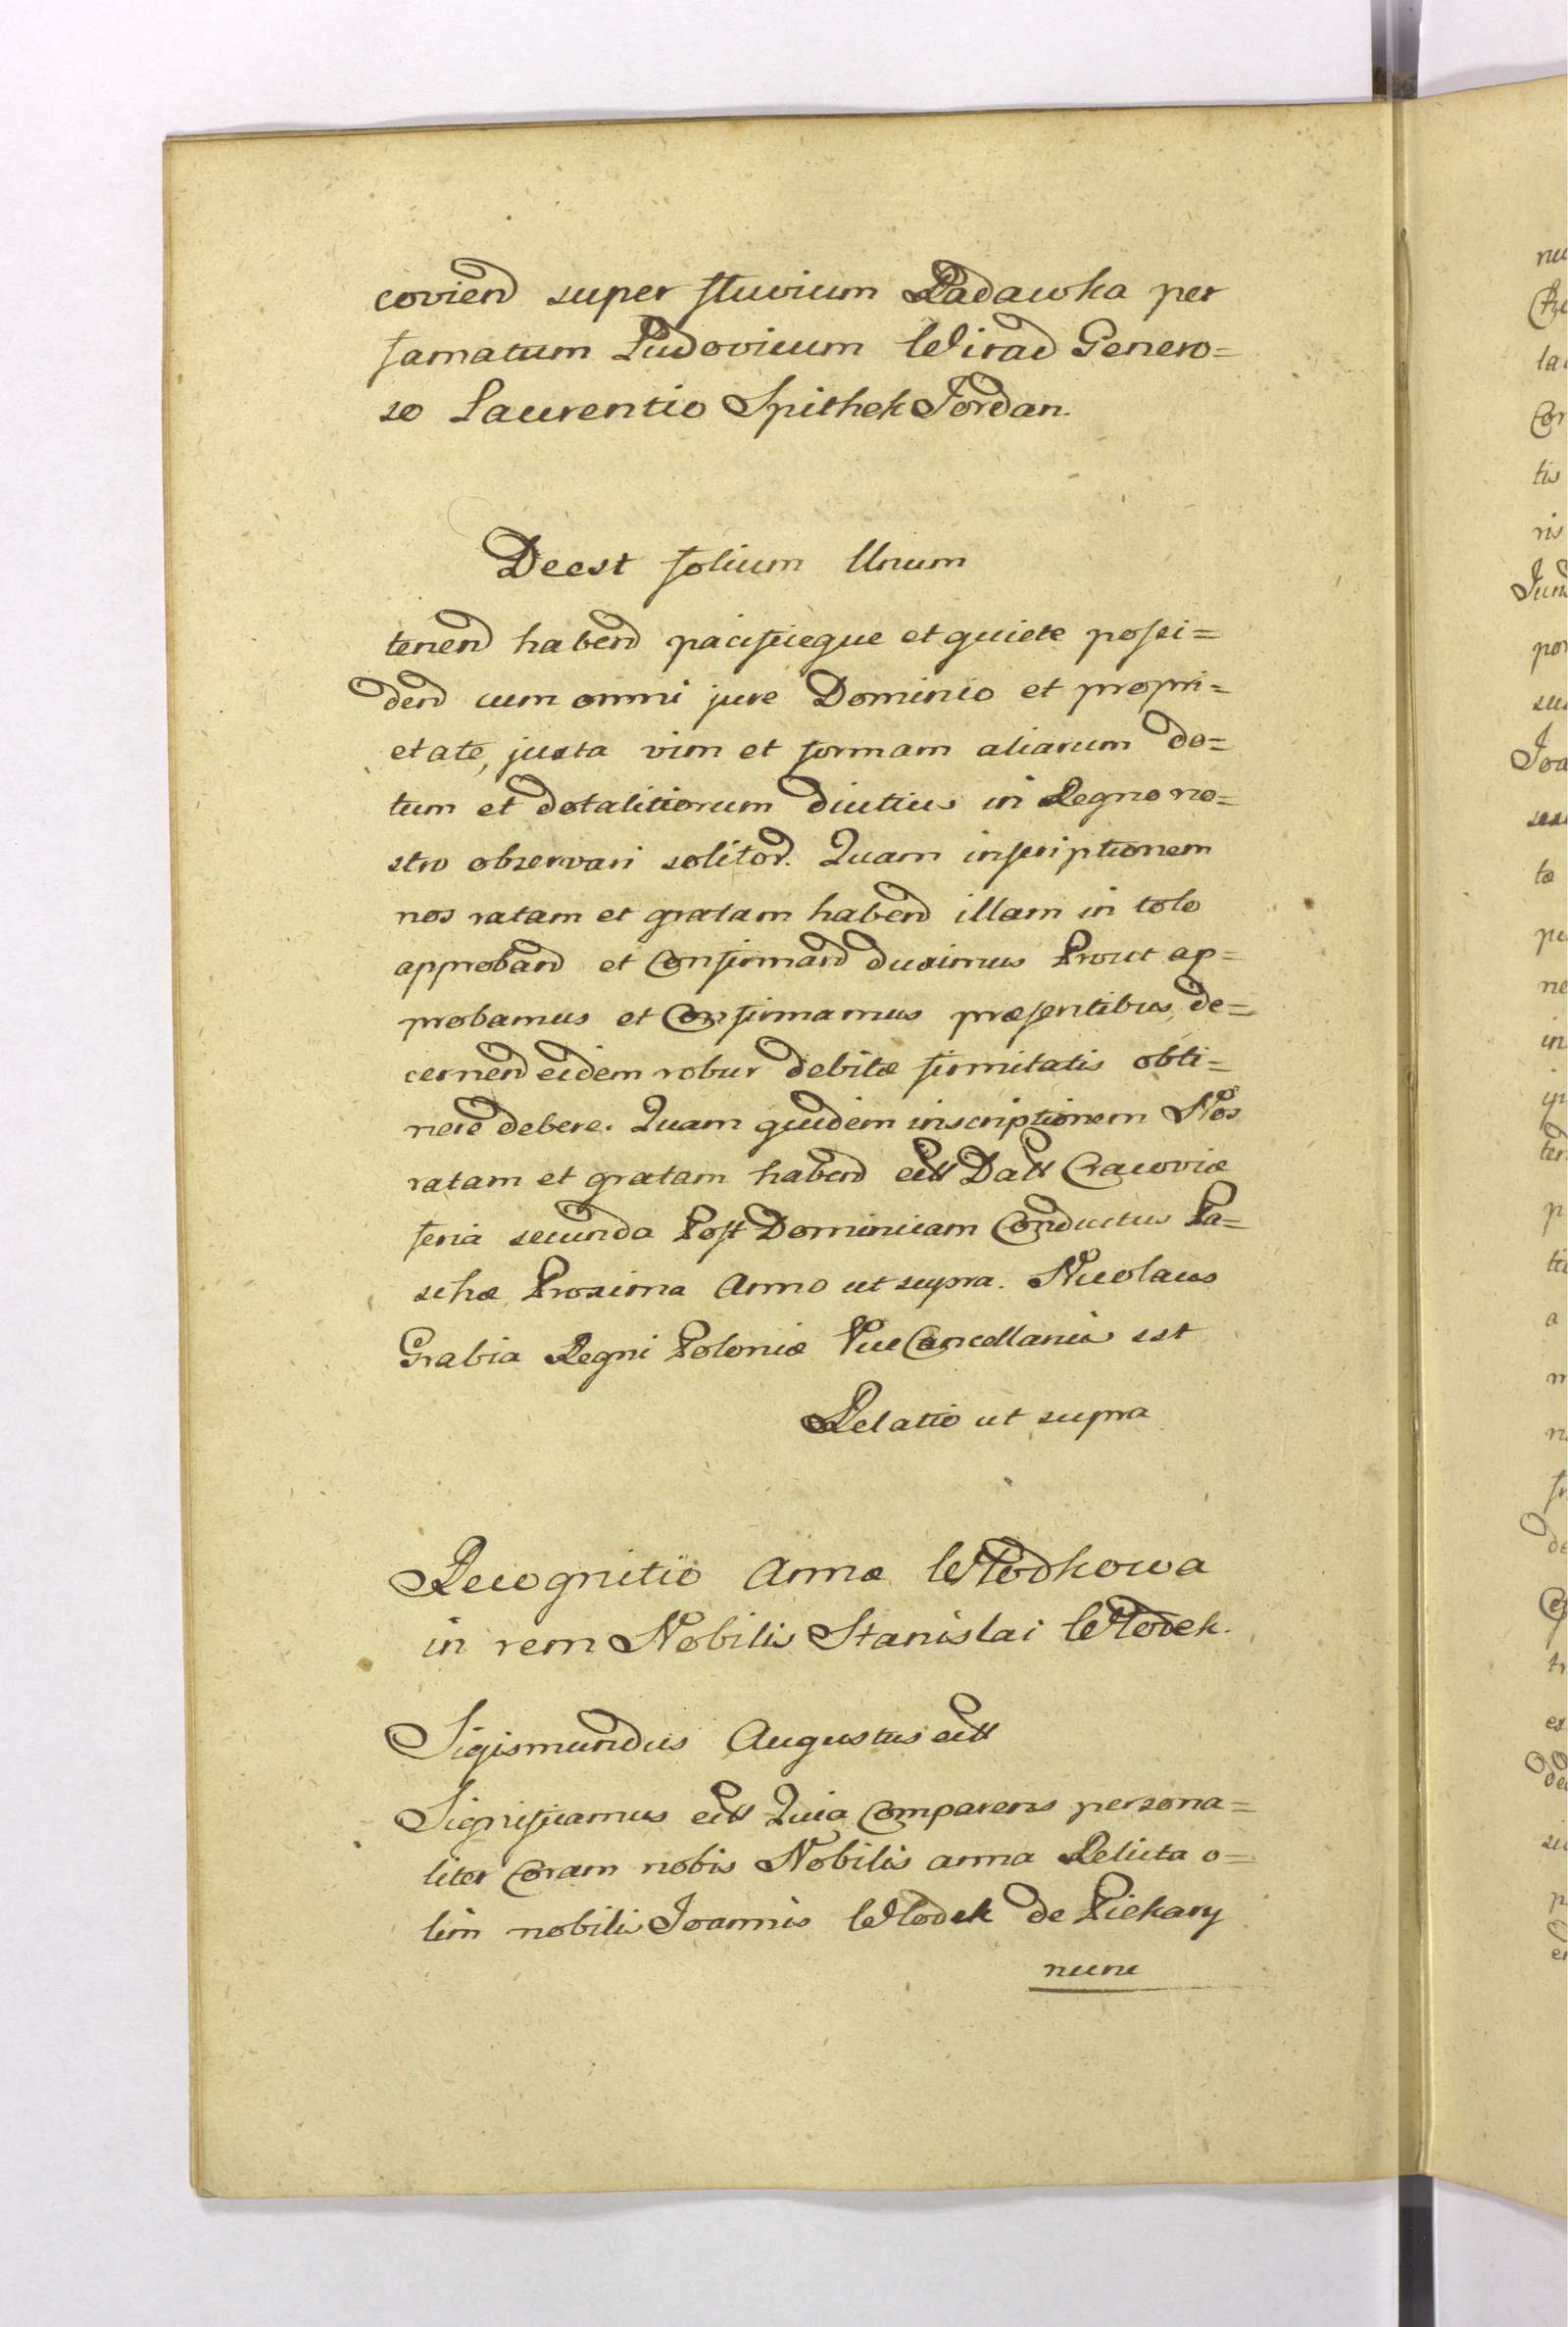 coviend super fluvium Radawka per
famatum Ludovicum Wirad Genero=
so Laurentio Spithek Jordan.
Deest folium Unum
tenend habend pacificeque et quiete possi=
dend cum omni jure Dominio et propri=
etate, juxta vim et formam aliarum do=
tum et dotalitiorum diutius in Regno no=
stro observari solitor. Quam inscriptionem
nos ratam et gratam habend illam in toto
approband et Confirmand duximus Prout ap=
probamus et Confirmamus præsentibus, de=
cernend eidem robur debitæ firmitatis obti=
nere debere. Quam quidem inscriptionem Nos
ratam et gratam habend ett Datt Cracoviæ
feria secunda Post Dominicam Conductus Pa=
schæ Proxima Anno ut supra. Nicolaus
Grabia Regni Poloniæ ViceCancellarius sst
Relatio ut supra
Recognitio Annæ Włodkowa
in rem Nobilis Stanislai Włodek.
Sigismundus Augustus ett
Significamus ett Quia Comparens persona=
liter Coram nobis Nobilis anna Relicta o=
lim nobilis Joannis Wlodek de Piekary
nunc
nu
la
Cor
tis
ris
Jund
por
su
Joa
to
pe
ne
in
ter
p
a
n